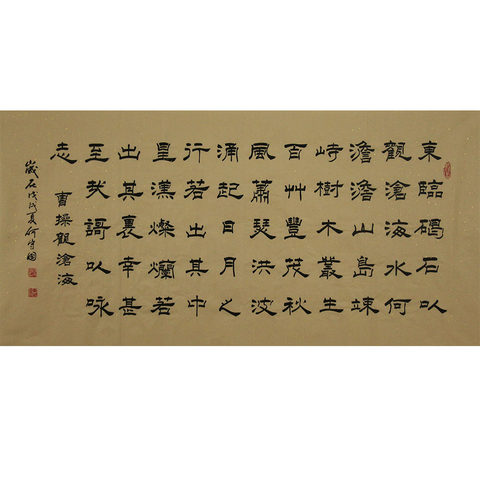 東臨碣石以
觀滄海水何
澹澹山島竦
峙樹木叢生
百艸豐茂秋
風蕭瑟洪波
涌起日月之
行若出其中
星漢燦爛若
出其裏幸甚
至哉謌以咏
志 曹操觀滄海
歲在戊戌夏何守國